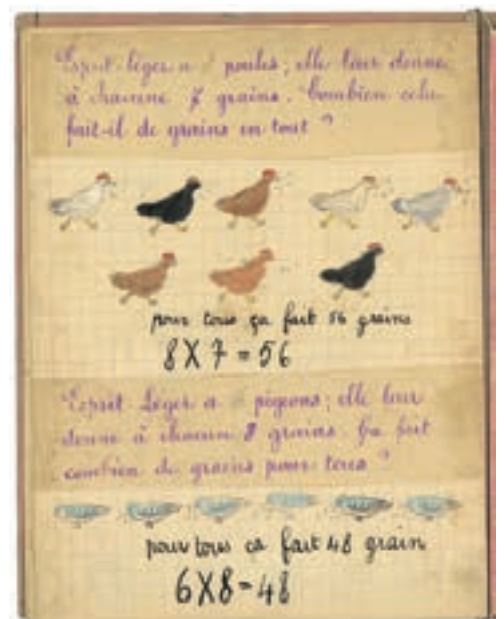 Esprit-léger a poules; elle leur donne
à chacune 7 grains. Combien cela
fait-il de grains en tout ?
pour tous ça fait 56 grains
8 X 7 = 56
Esprit Léger a pigeons; elle leur
donne à chacun 8 grains. Ça fait
combien de grains pour tous ?
pour tous ca fait 48 grain
6X8=48